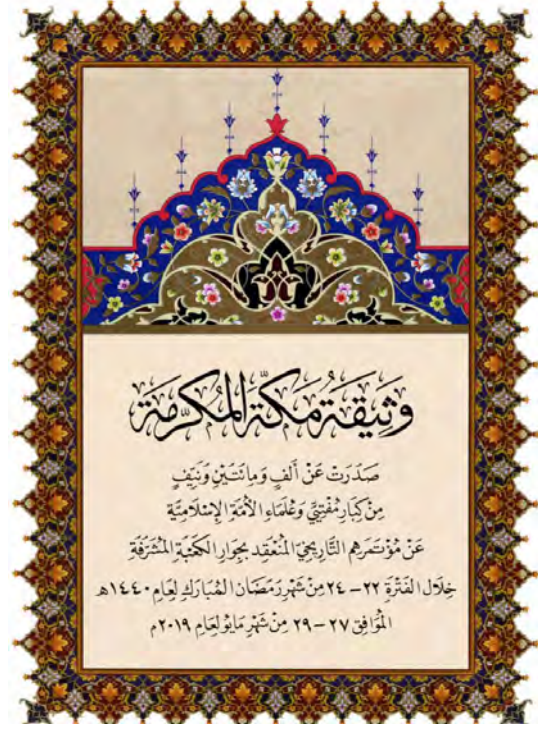 وَثِيقَةُ مَكَّةَ المُكَرَّمَةِ
صَدَرَتْ عَنْ أَلْفٍ وَمِائَتَيْنِ وَنَيِّفٍ
مِنْ كِبَارِ مُفْتِيِّ وَعُلَمَاءِ الأُمَّةِ الإِسْلَامِيَّةِ
عَنْ مُؤْتَمَرِهِم التَّارِيخِيّ المُنْعَقِد بِجِوَارِ الكَعْبَةِ المُشَرَّفَةِ
خِلَال الفَتْرَةِ ٢٢ – ٢٤ مِنْ شَهْرِ رَمَضَان المُبَارَكِ لِعَامِ ١٤٤٠هـ
المُوَافِق ٢٧ – ٢٩ مِنْ شَهْرِ مَايُو لِعَامِ ٢٠١٩م